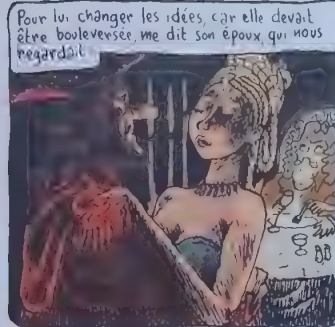 Pour lui changer les idées, car elle devait
être bouleversée, me dit son époux, qui nous
regardait.